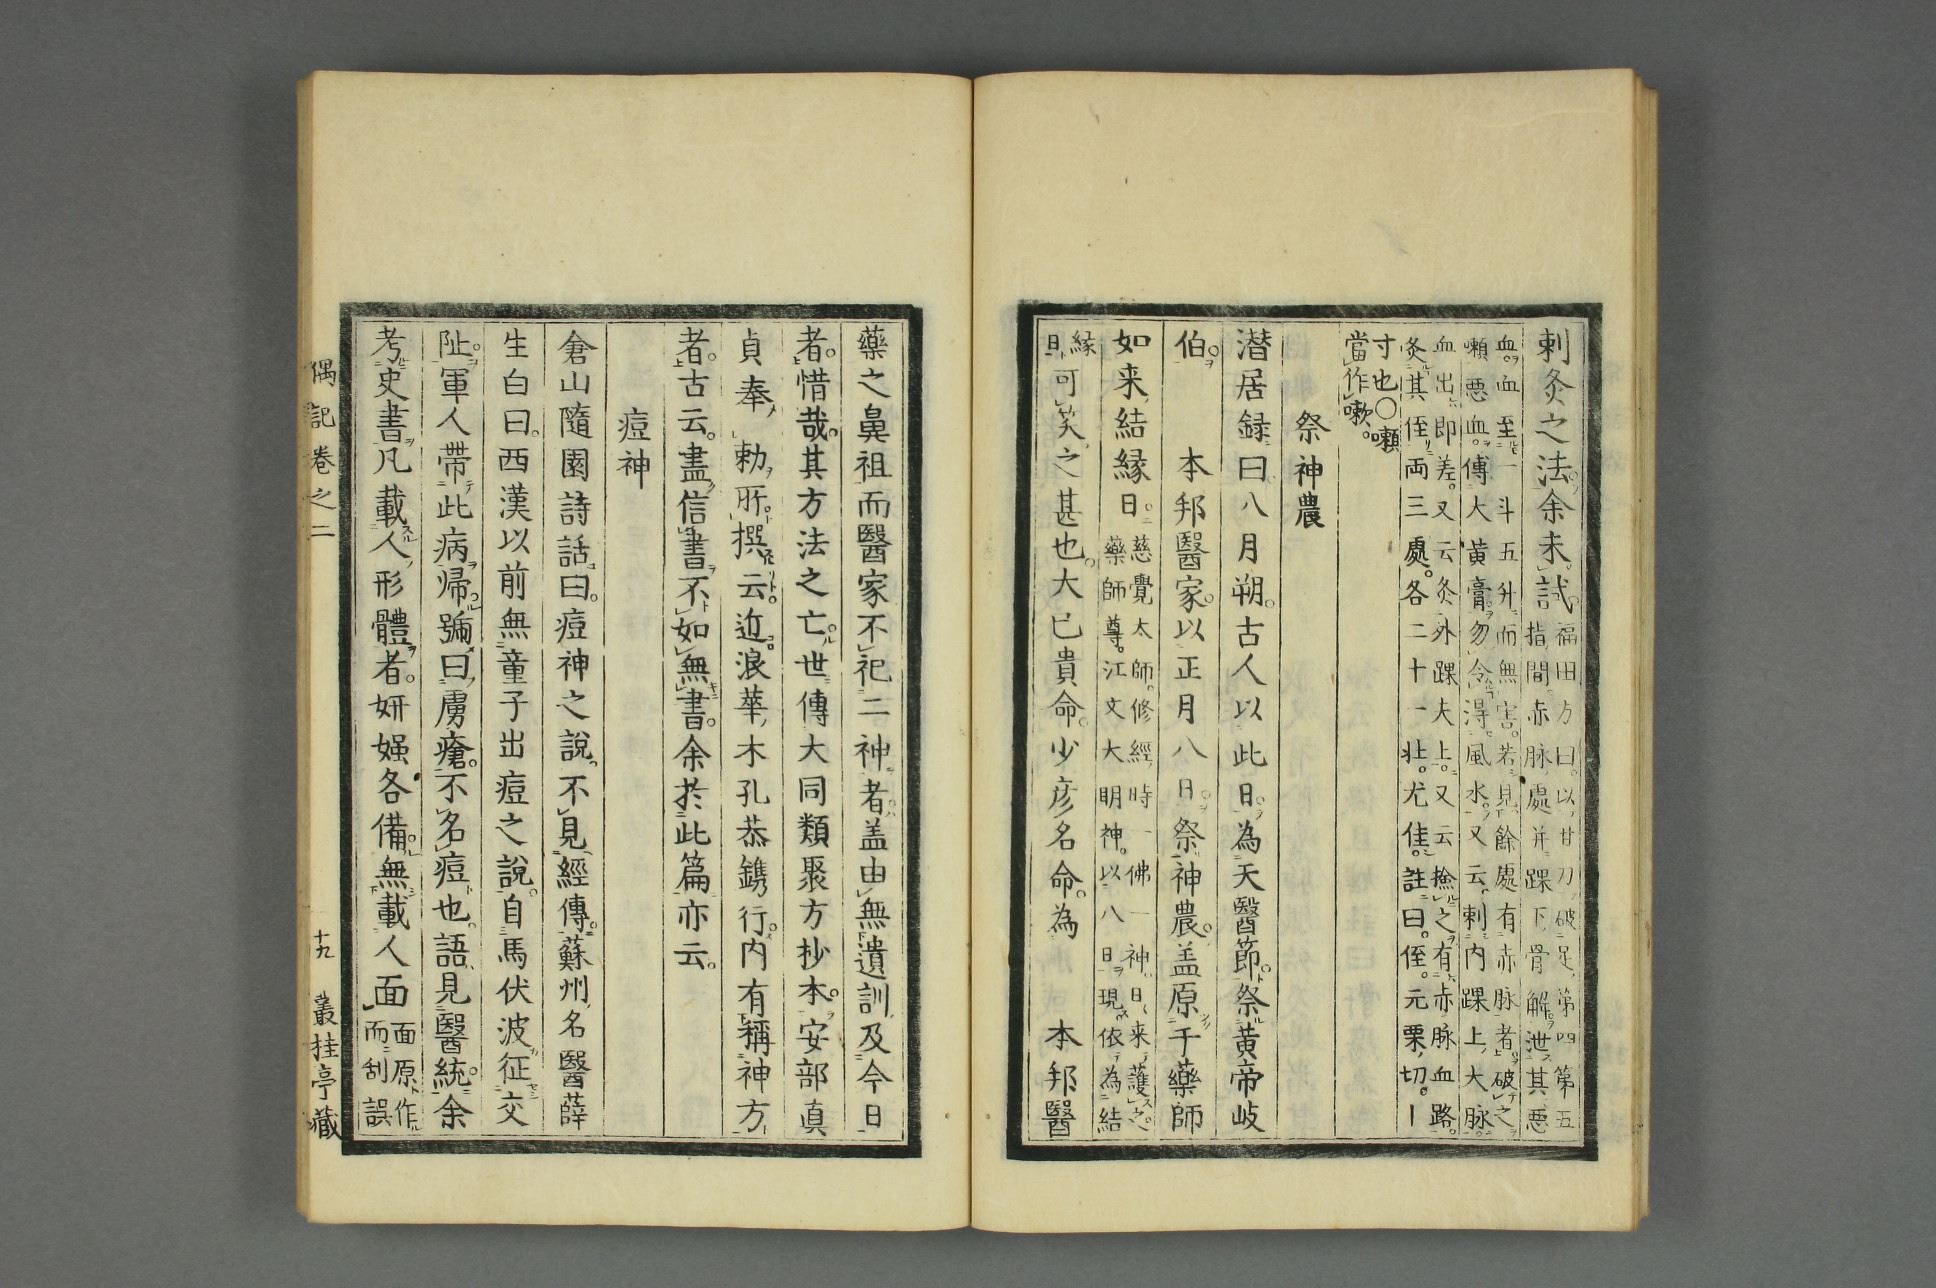 刺灸之法余未試福田方曰以甘刀破足第四第五
指間赤脉處并踝下骨解泄其惡
血血至一斗五升而無害若見餘處有赤脉者破之
嗽惡血傅大黄膏勿令得風水又云刺内踝上大脉
血出即差又云灸外踝夫上又云撿之有赤脉血路
灸其侄両三處各二十一壮尤佳註曰侄元栗切一
寸也〇嗽
當作嗽
祭神農
潛居録曰八月朔古人以此日為天醫節祭黄帝岐
伯　本邦醫家以正月八日祭神農盖原于藥師
如来結縁日慈覺太師修經時一佛一神日来護之
藥師尊江文大明神以八日現依為結
縁
日可笑之甚也大已貴命少彦名命為　本邦醫
藥之鼻祖而醫家不祀二神者盖由無遺訓及今日
者惜哉其方法之亡世傳大同類聚方抄本安部真
貞奉勅所撰云近浪華木孔恭鐫行内有稱神方
者古云盡信書不如無書余於此篇亦云
痘神
倉山隨園詩話曰痘神之說不見經傳蘇州名醫薛
生白曰西漢以前無童子出痘之說自馬伏波征交
阯軍人帶此病帰號曰虜瘡不名痘也語見醫統余
考史書凡載人形體者妍媸各備無載人面面原作
而刮誤
偶記卷之二
十九
叢桂亭藏